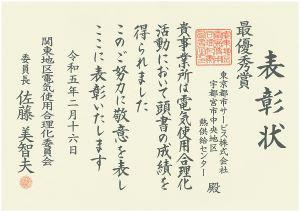 表彰状
最優秀賞
東京都市サービス株式会社
宇都宮市中央地区
熱供給センター 殿
貴事業所は電気使用合理化
活動において頭書の成績を
得られました
このご努力に敬意を表し
ここに表彰いたします
令和五年二月十六日
関東地区電気使用合理化委員会
委員長 佐藤 美智夫